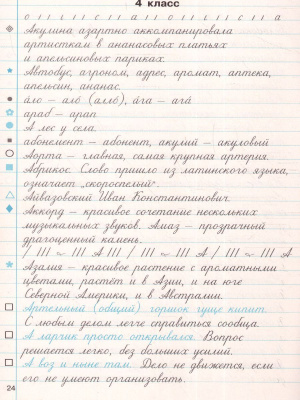 4 класс
Акулина азартно аккомпанировала
артисткам в ананасовых платьях
и апельсиновых париках.
Автобус, агроном, адрес, аромат, аптека,
апельсин, ананас.
а́ло – ало́ (алле́), а́га – ага́
арад – арап
А лес у села.
абонемент – абонент, акулий – акуловый
Аорта – главная, самая крупная артерия.
Абрикос. Слово пришло из латинского языка,
означает „скороспелый“.
Айвазовский Иван Константинович.
Аккорд – красивое сочетание нескольких
музыкальных звуков. Алмаз – прозрачный
драгоценный камень.
/ III ~ III А III / III ~ III А / III ~ III А
Азалия – красивое растение с ароматными
цветами, растёт и в Азии, и на юге
Северной Америки, и в Австралии.
Артельный (общий) горшок гуще кипит.
С любым делом легче справиться сообща.
А ларчик просто открывался. Вопрос
решается легко, без больших усилий.
А воз и ныне там. Дело не движется, если
его не умеют организовать.
24